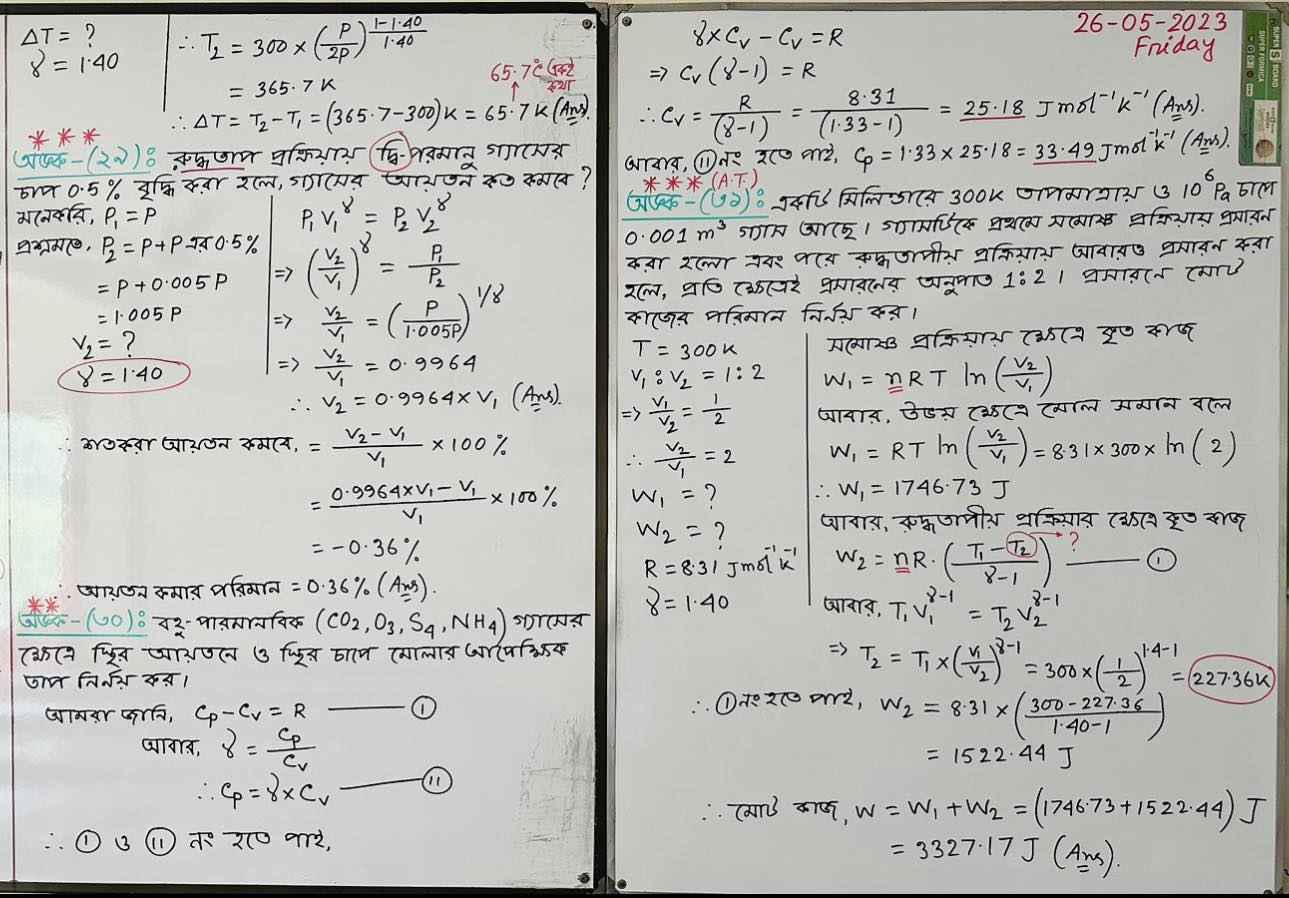 ΔT = ?
γ = 1.40
∴ T₂ = 300 × (P/2P)^((1-1.40)/1.40)
= 365.7 K
65.7°C একই কথা
∴ ΔT = T₂ - T₁ = (365.7 - 300)K = 65.7 K (Ans).
***
অঙ্ক-(২৯): রুদ্ধতাপ প্রক্রিয়ায় দ্বি-পরমানু গ্যাসের
চাপ 0.5% বৃদ্ধি করা হলে, গ্যাসের আয়তন কত কমবে ?
মনেকরি, P₁ = P
প্রশ্নমতে, P₂ = P + P এর 0.5%
= P + 0.005 P
= 1.005 P
V₂ = ?
γ = 1.40
P₁V₁^γ = P₂V₂^γ
⇒ (V₂/V₁)^γ = P₁/P₂
⇒ V₂/V₁ = (P/1.005P)^(1/γ)
⇒ V₂/V₁ = 0.9964
∴ V₂ = 0.9964 × V₁ (Ans).
∴ শতকরা আয়তন কমবে, = (V₂ - V₁)/V₁ × 100%
= (0.9964×V₁ - V₁)/V₁ × 100%
= -0.36%
∴ আয়তন কমার পরিমান = 0.36% (Ans).
**
অঙ্ক-(৩০): বহু-পারমানবিক (CO₂, O₃, S₄, NH₄) গ্যাসের
ক্ষেত্রে স্থির আয়তনে ও স্থির চাপে মোলার আপেক্ষিক
তাপ নির্নয় কর।
আমরা জানি, Cp - Cv = R —— (I)
আবার, γ = Cp/Cv
∴ Cp = γ × Cv —— (II)
∴ (I) ও (II) নং হতে পাই,
26-05-2023
Friday
SUPER BOARD
SUPER FORMICA
γ × Cv - Cv = R
⇒ Cv (γ-1) = R
∴ Cv = R/(γ-1) = 8.31/(1.33-1) = 25.18 Jmol⁻¹K⁻¹ (Ans).
আবার, (II) নং হতে পাই, Cp = 1.33 × 25.18 = 33.49 Jmol⁻¹K⁻¹ (Ans).
*** (A.T.)
অঙ্ক-(৩১): একটি সিলিন্ডারে 300K তাপমাত্রায় ও 10⁶ Pa চাপে
0.001 m³ গ্যাস আছে। গ্যাসটিকে প্রথমে সমোষ্ণ প্রক্রিয়ায় প্রসারন
করা হলো এবং পরে রুদ্ধতাপীয় প্রক্রিয়ায় আবারও প্রসারন করা
হলে, প্রতি ক্ষেত্রেই প্রসারনের অনুপাত 1:2। প্রসারনে মোট
কাজের পরিমান নির্নয় কর।
T = 300 K
V₁ : V₂ = 1 : 2
⇒ V₁/V₂ = 1/2
∴ V₂/V₁ = 2
W₁ = ?
W₂ = ?
R = 8.31 Jmol⁻¹K⁻¹
γ = 1.40
সমোষ্ণ প্রক্রিয়ায় ক্ষেত্রে কৃত কাজ
W₁ = nRT ln(V₂/V₁)
আবার, উভয় ক্ষেত্রে মোল সমান বলে
W₁ = RT ln(V₂/V₁) = 8.31 × 300 × ln(2)
∴ W₁ = 1746.73 J
আবার, রুদ্ধতাপীয় প্রক্রিয়ার ক্ষেত্রে কৃত কাজ
W₂ = nR·((T₁ - T₂)/(γ-1)) ? —— (I)
আবার, T₁V₁^(γ-1) = T₂V₂^(γ-1)
⇒ T₂ = T₁ × (V₁/V₂)^(γ-1) = 300 × (1/2)^(1.4-1) = 227.36K
∴ (I) নং হতে পাই, W₂ = 8.31 × ((300 - 227.36)/(1.40-1))
= 1522.44 J
∴ মোট কাজ, W = W₁ + W₂ = (1746.73 + 1522.44) J
= 3327.17 J (Ans).